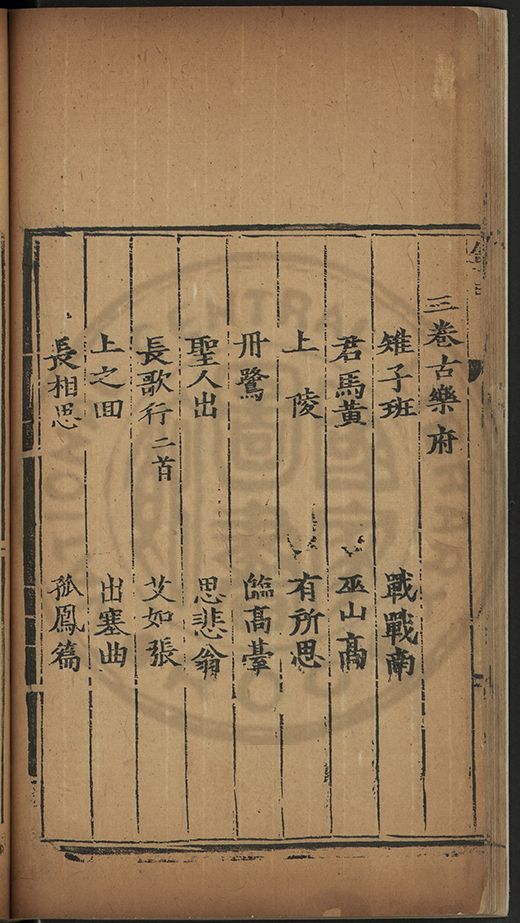 三卷古樂府
雉子班 戰戰南
君馬黃 巫山高
上陵 有所思
冊鷺 臨高臺
聖人出 思悲翁
長歌行二首 艾如張
上之回 出塞曲
長相思 孤鳳篇